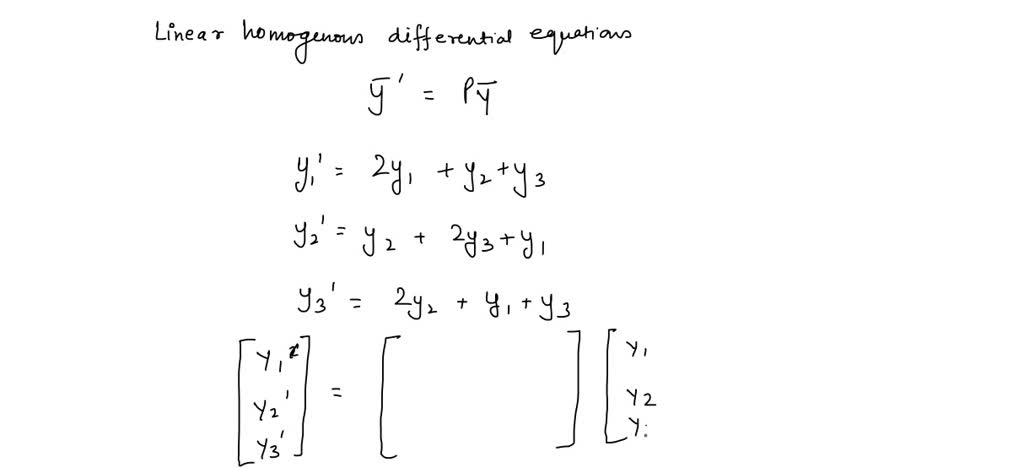 Linear homogenous differential equations
ȳ' = Pȳ
y₁' = 2y₁ + y₂ + y₃
y₂' = y₂ + 2y₃ + y₁
y₃' = 2y₂ + y₁ + y₃
[y₁' y₂' y₃'] = [ ] [y₁ y₂ y